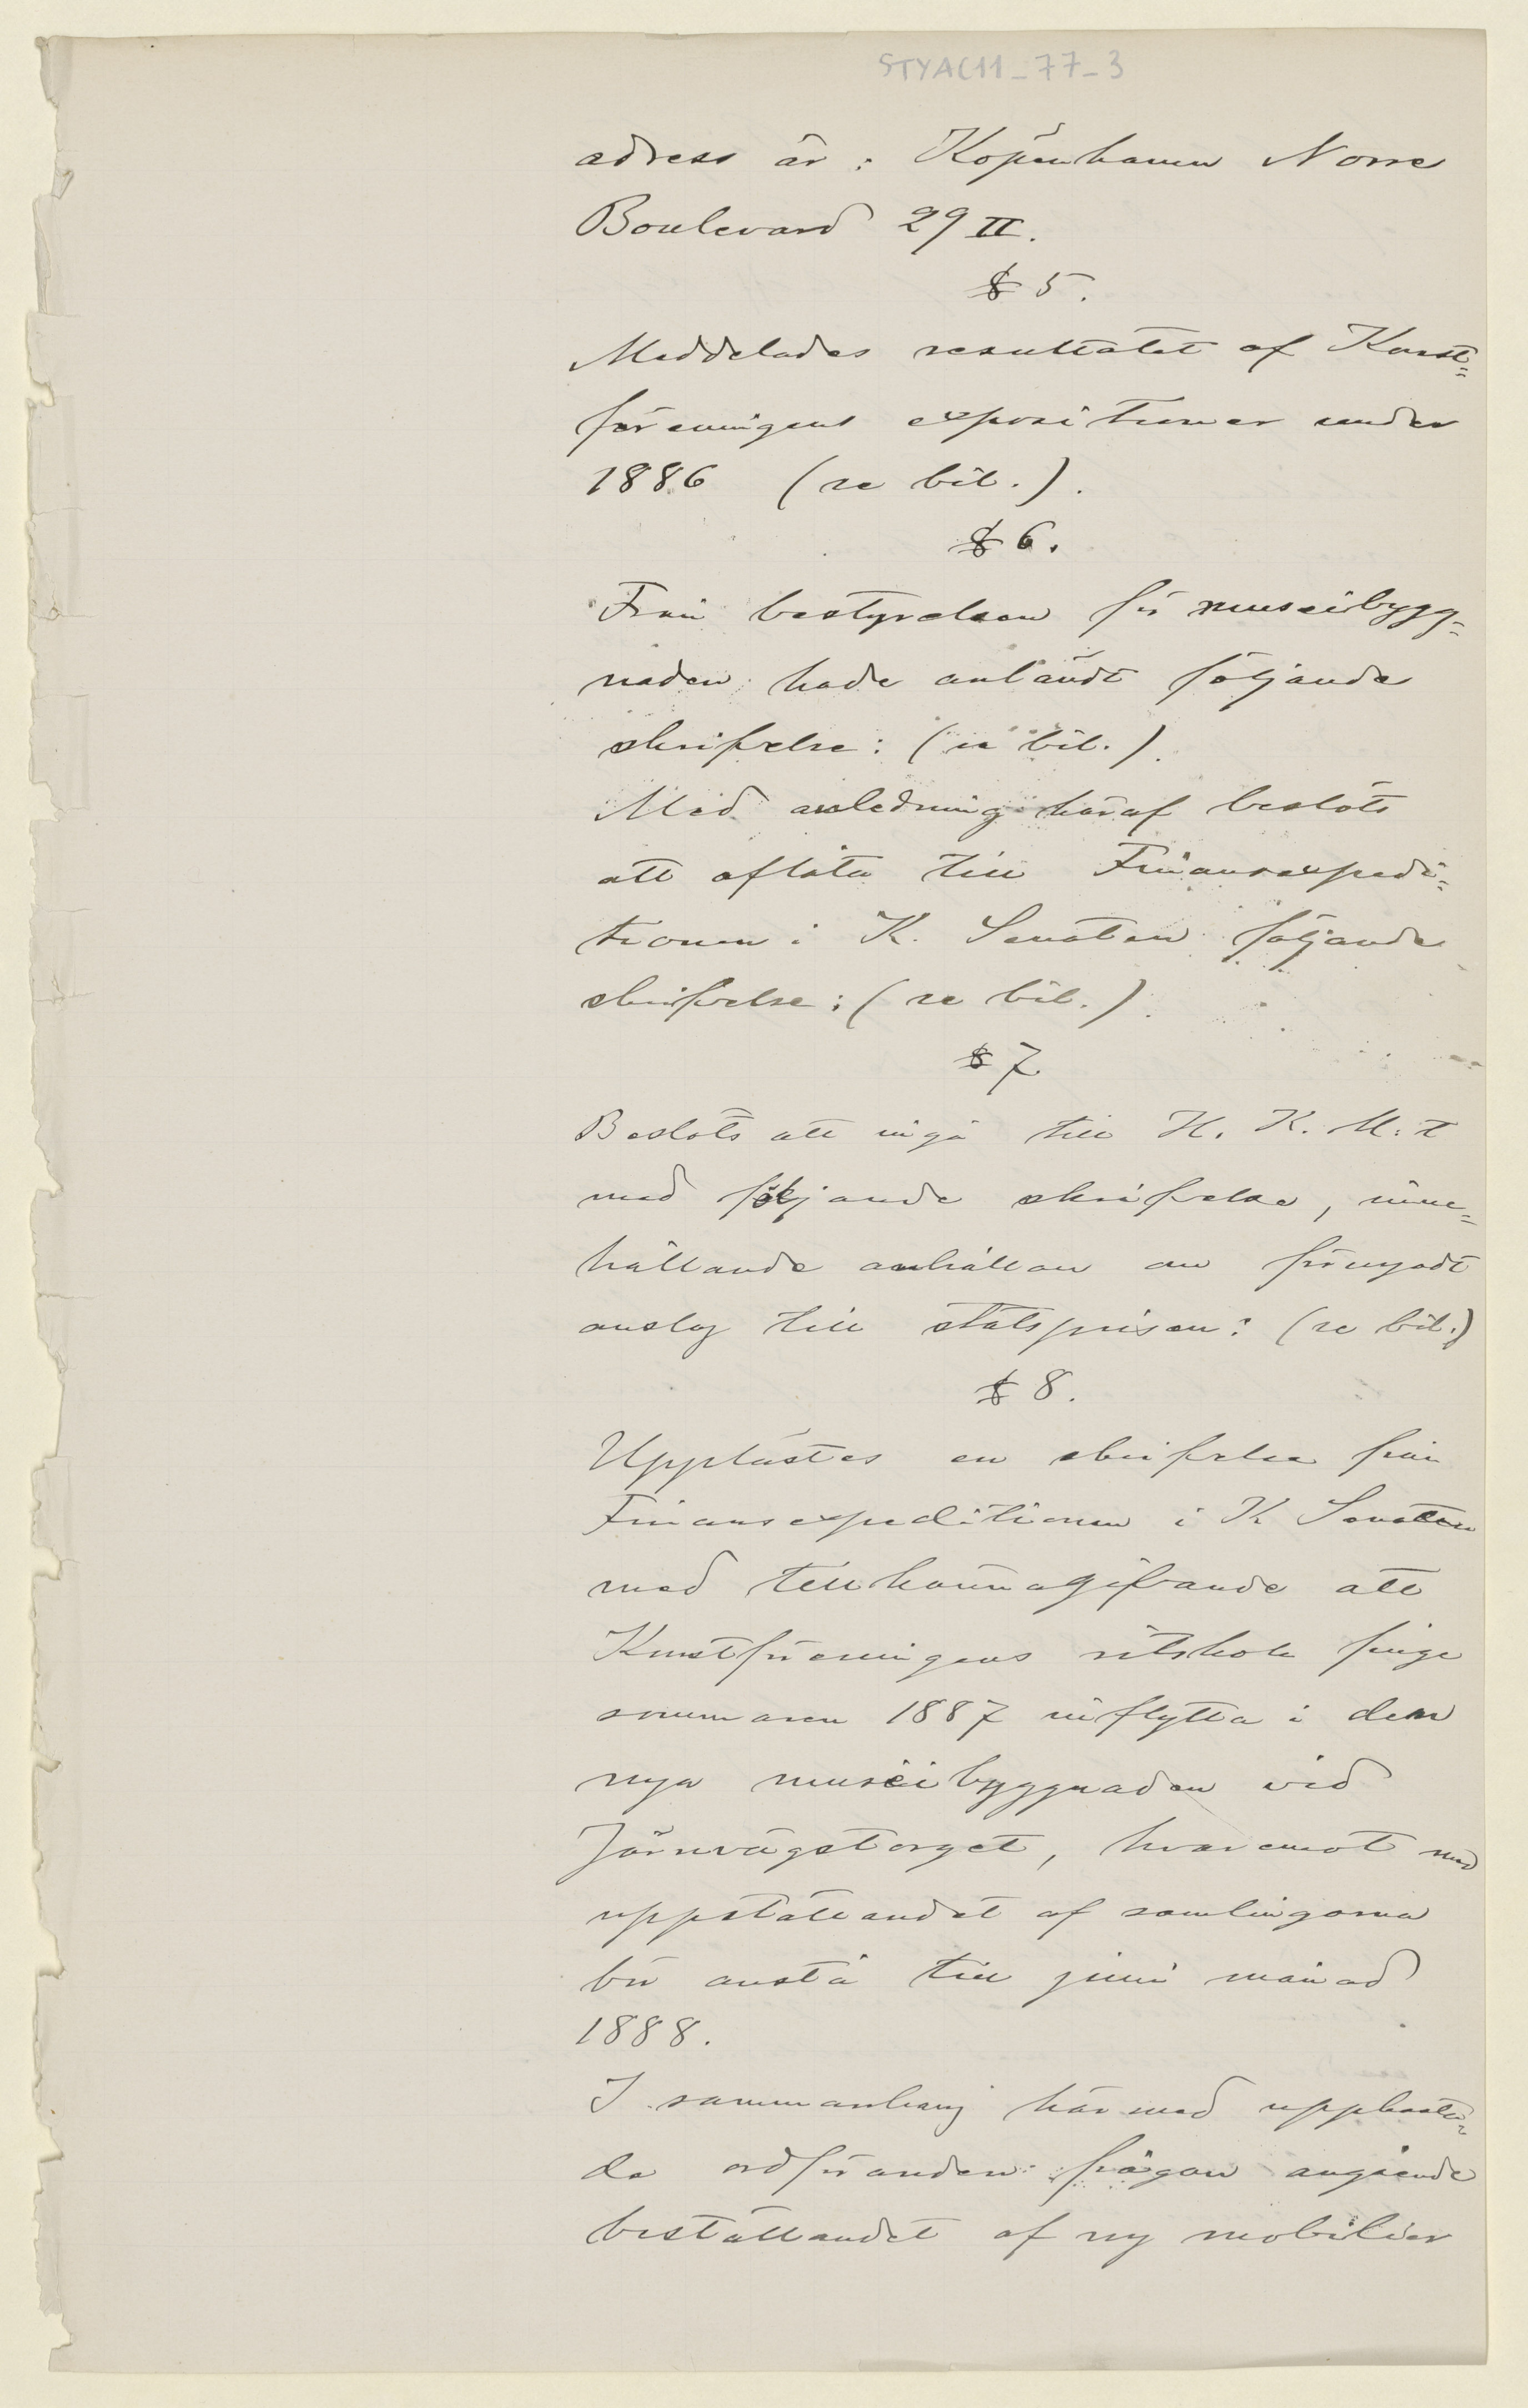 STYAC11_77_3
adress är: Köpenhamn Norre
Boulevard 29 II.
§ 5.
Meddelades resultatet af Konst=
föreningens expositioner under
1886 (se bil.).
§ 6.
Från bestyrelsen för museibygg=
naden hade anländt följande
skrifvelse: (se bil.).
Med anledning häraf beslöts
att aflåta till Finansexpedi=
tionen i K. Senaten följande
skrifvelse: (se bil.).
§ 7
Beslöts att ingå till H. K. M:t
med följande skrifvelse, inne=
hållande anhållan om förnyadt
anslag till statsprisen: (se bil.)
§ 8.
Upplästes en skrifvelse från
Finansexpeditionen i K Senaten
med tillkännagifvande att
Konstföreningens ritskola finge
sommaren 1887 inflytta i den
nya museibyggnaden vid
Järnvägstorget, hvaremot med
uppställandet af samlingarna
bör anstå till juni månad
1888.
I sammanhang härmed uppkasta=
de ordföranden frågan angående
beställandet af ny mobilier